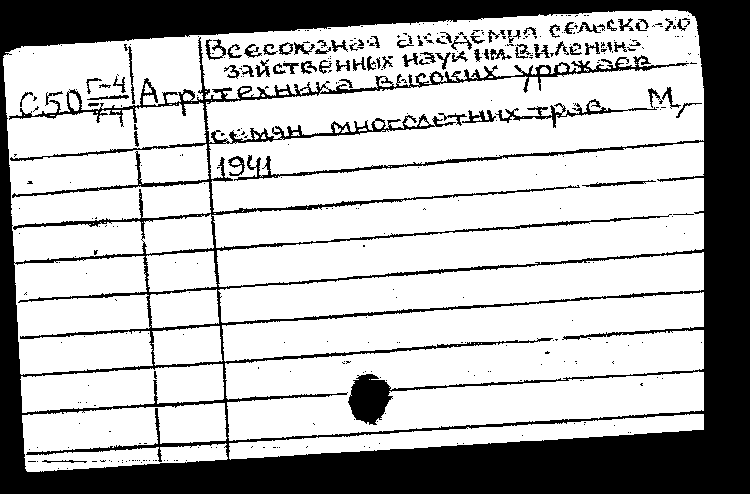 Всесоюзная академия сельско-хо
зяйственных наук им. В.И. Ленина
С50 Г-4/44 Агротехника высоких урожаев
семян многолетних трав. М,
1941